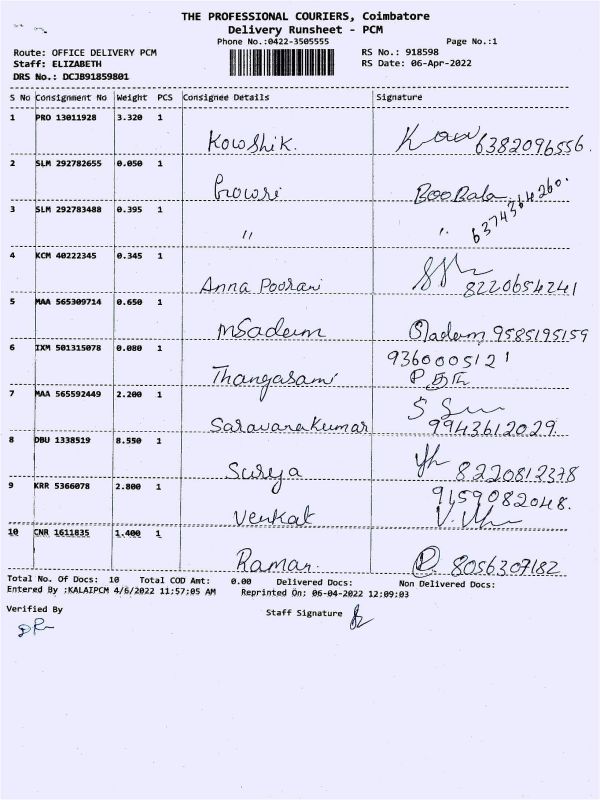 THE PROFESSIONAL COURIERS, Coimbatore
Delivery Runsheet - PCM
Phone No.:0422-3505555 Page No.:1
Route: OFFICE DELIVERY PCM RS No.: 918598
Staff: ELIZABETH RS Date: 06-Apr-2022
DRS No.: DCJB91859801
S No Consignment No Weight PCS Consignee Details Signature
1 PRO 13011928 3.320 1
Kowshik. 6382096556.
2 SLM 292782655 0.050 1
Gowri BooBala 6374364260.
3 SLM 292783488 0.395 1
" "
4 KCM 40222345 0.345 1
Anna Poorani 8220654241
5 MAA 565309714 0.650 1
MSadeem Sadeem 9585195159
6 IXM 501315078 0.080 1 9360005121
Thangasami
7 MAA 565592449 2.200 1
Saravanakumar 9943612029.
8 DBU 1338519 8.550 1
Surya 8220812378
9 KRR 5366078 2.800 1 9159082048.
Venkat
10 CNR 1611835 1.400 1
Raman. 8056307182
Total No. Of Docs: 10 Total COD Amt: 0.00 Delivered Docs: Non Delivered Docs:
Entered By :KALAIPCM 4/6/2022 11:57:05 AM Reprinted On: 06-04-2022 12:09:03
Verified By Staff Signature